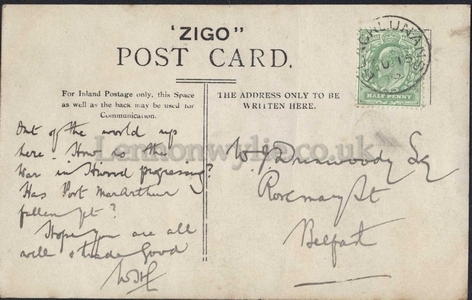 'ZIGO"
POST CARD.
For Inland Postage only, this Space
as well as the back may be used for
Communication.
THE ADDRESS ONLY TO BE
WRITTEN HERE.
HALF PENNY
Out of the world up
here. How is the
War in progressing?
Has Port MacArthur
fallen yet?
Hope you are all
well & trade good
W J Dunwoody Esq
Rosemary St
Belfast
Lennonwylie.co.uk